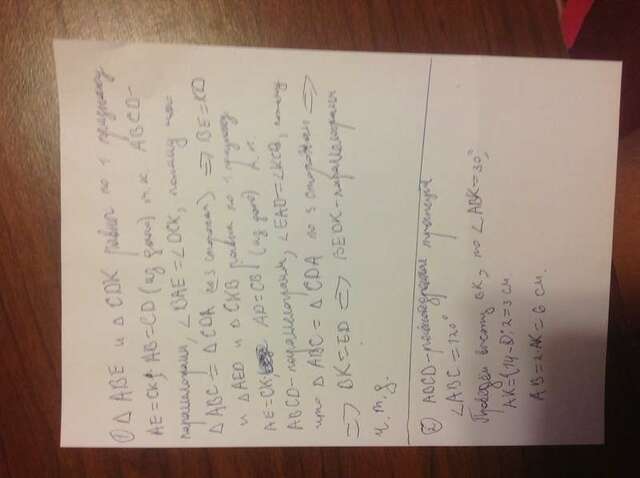 ① △ ABE и △ CDK равны по 1 признаку
AE=CK, AB=CD (из усло) т.к ABCD-
параллелограмм, ∠BAE=∠DCK, потому что
△ABC=△CDA по 3 сторонам) ⇒ BE=KD
и △AED и △CKB равны по 1 признаку
AE=CK, AD=CB (из усло) т.к
ABCD-параллелограмм, ∠EAD=∠KCB, потому
что △ABC=△CDA по 3 сторонам ⇒
⇒ BK=ED ⇒ BEDK-параллелограмм
ч.т.д.
② ABCD-равнобедренная трапеция
∠ABC=120°
Проведём высоту BK, то ∠ABK=30°,
AK=(14-8):2=3 см
AB=2·AK=6 см.